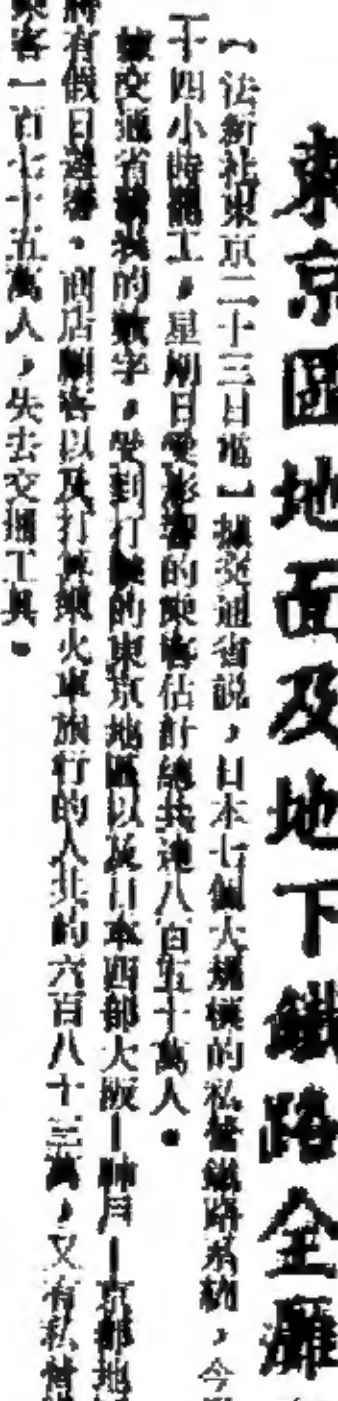 東京區地面及地下鐵路全
【法新社東京二十三日電】據交通省説，日本七個大規模的私營鐵路系統，今
十四小時罷工，星期日受影響的乘客估計總共達八百五十萬人。
據交通省發表的數字，受到打擊的東京地區以及日本西部大阪－神戶－京都地
將有假日遊客，商店顧客以及打算乘火車旅行的人共約六百八十三萬，又有私營
乘客一百七十五萬人，失去交通工具。